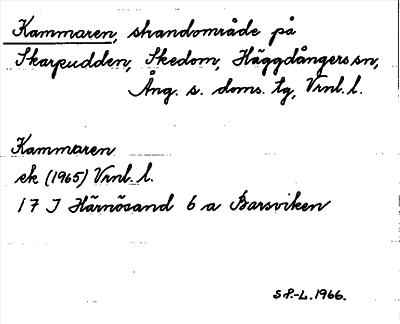 Kammaren, strandområde på
Skarpudden, Skedom, Häggdångers sn,
Ång. s. doms. tg, Vrnl. l.
Kammaren
ek (1965) Vrnl. l.
17 J Härnösand 6 a Barsviken
S P.-L. 1966.